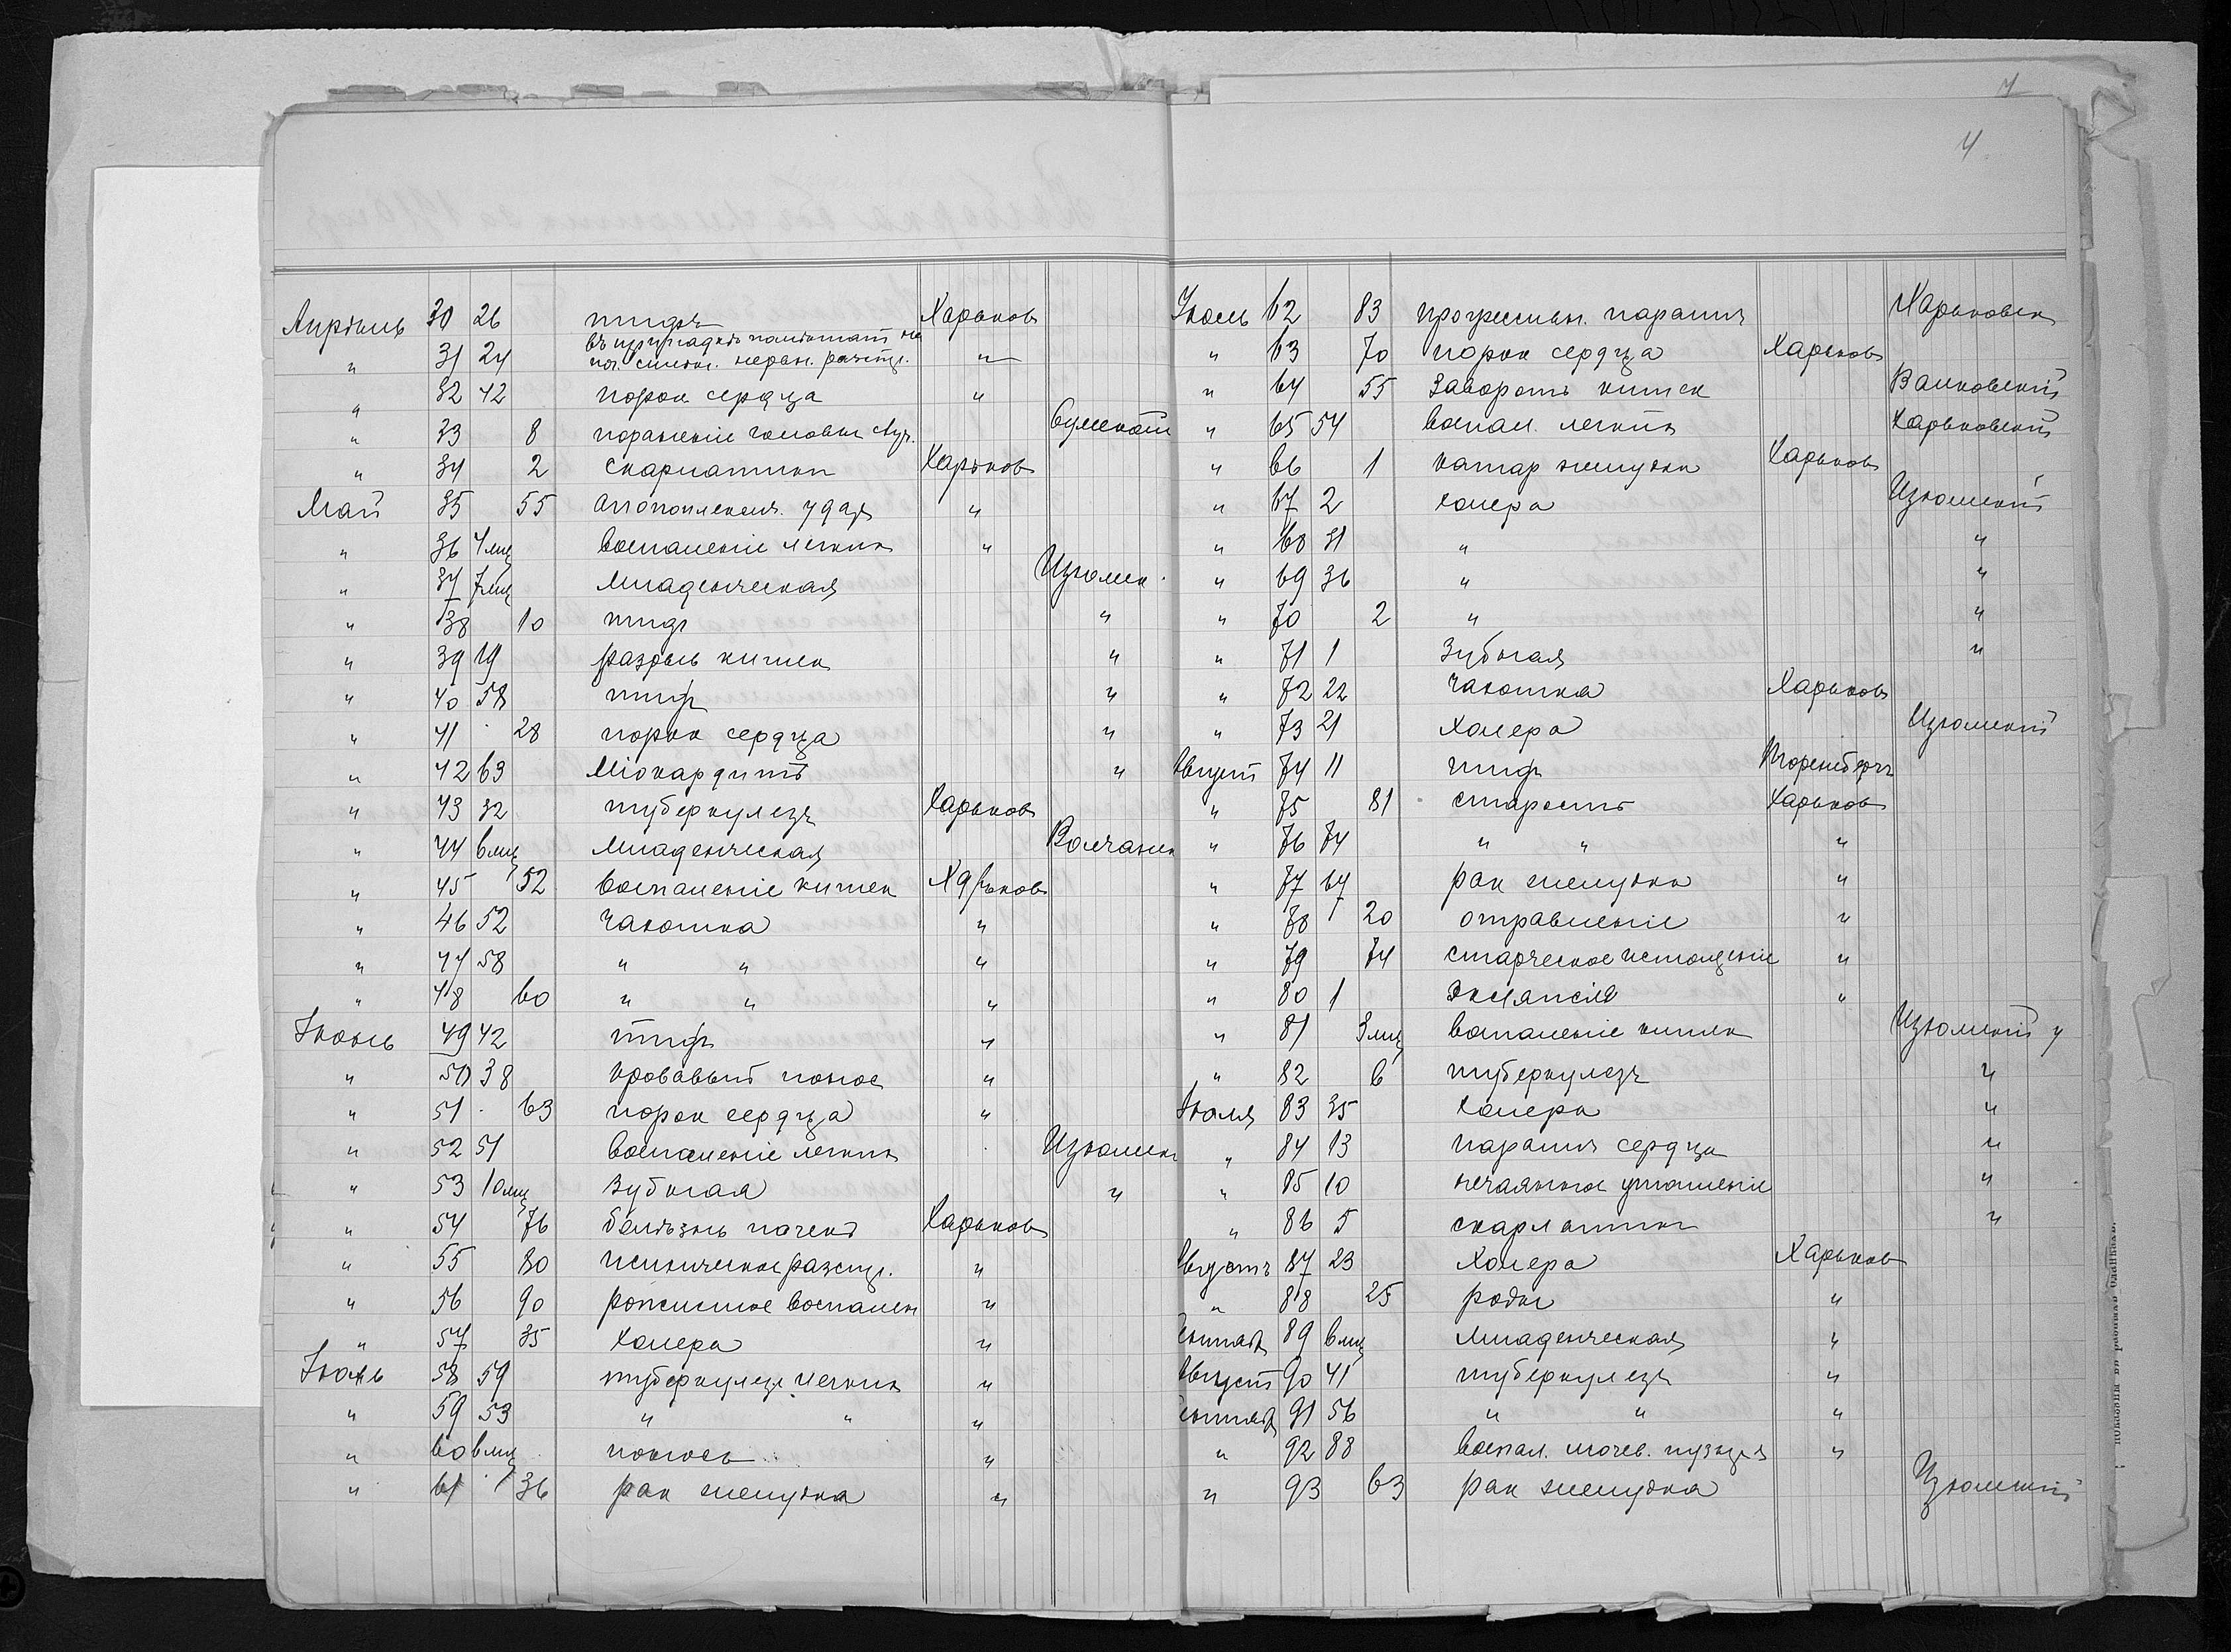 4
Апрѣль 30 26 тифъ Харьковъ
" 31 24 "
" 32 42 порокъ сердца "
" 33 8 пораженіе головы Сумской
" 34 2 скарлатина Харьковъ
Май 35 55 апоплексич. ударъ "
" 36 4 мц воспаленіе легкихъ "
" 37 7 мц Младенческая Изюмск.
" 38 10 тифъ "
" 39 19 кишек "
" 40 58 тиф "
" 41 28 порокъ сердца "
" 42 63 Міокардитъ "
" 43 32 туберкулезъ Харьковъ
" 44 6 мц Младенческая Волчанск
" 45 52 воспаленіе кишек Харьковъ
" 46 52 чахотка "
" 47 58 " " "
" 48 60 " " "
Іюнь 49 42 тифъ "
" 50 38 кровавый понос "
" 51 63 порок сердца "
" 52 51 воспаленіе легких Изюмск
" 53 10 мц Зубная "
" 54 76 болѣзнь печени Харьков
" 55 80 психическое разстр. "
" 56 90 рожистое воспален "
" 57 35 Холера "
Іюль 58 59 туберкулез легких "
" 59 53 " " "
" 60 6 мц поносъ "
" 61 36 рак желудка "
Іюль 62 83 прогрессивн. паралич Харьковск
" 63 70 порок сердца Харьковъ
" 64 55 Заворотъ кишек Валковскій
" 65 54 воспал. легкихъ Харьковскій
" 66 1 катар желудка Харьковъ
" 67 2 холера Изюмскій
" 68 31 " "
" 69 36 " "
" 70 2 " "
" 71 1 Зубная "
" 72 22 чахотка Харьковъ
" 73 21 Холера Изюмскій
Август 74 11 тиф
" 75 81 старость Харьковъ
" 76 74 " " "
" 77 67 рак желудка "
" 78 20 отравленіе "
" 79 74 старческое истощеніе "
" 80 1 Эклямпсія "
" 81 3 мц воспаленіе кишек Изюмскій у
" 82 6 туберкулезъ "
Іюля 83 35 Холера "
" 84 13 паралич сердца "
" 85 10 нечаянное утопленіе "
" 86 5 скарлатина "
Августъ 87 23 Холера Харьков
" 88 25 роды "
Сентяб 89 6 мц Младенческая "
Август 90 41 туберкулезъ "
Сентяб 91 56 " " "
" 92 88 воспал. мочев. пузыря "
" 93 63 рак желудка Изюмскій